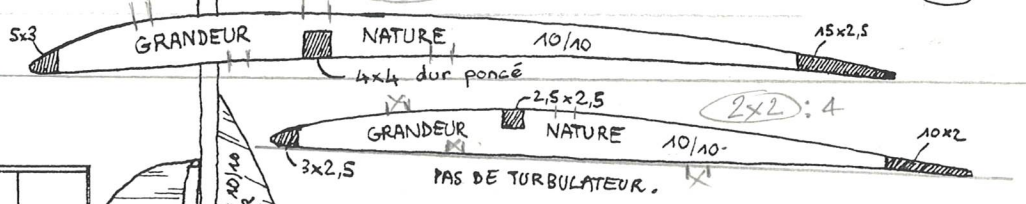 5x3 GRANDEUR NATURE 10/10 15x2,5
4x4 dur poncé
2,5x2,5 2x2 : 4
GRANDEUR NATURE 10/10 10x2
3x2,5
PAS DE TURBULATEUR.
10/10